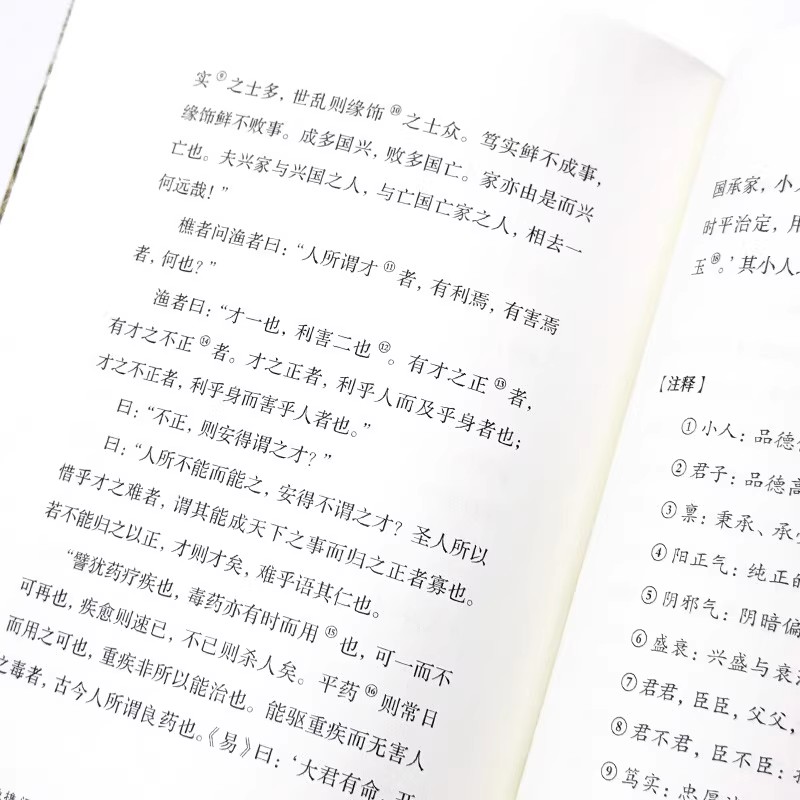 实⑨之士多，世乱则缘饰⑩之士众。笃实鲜不成事，
缘饰鲜不败事。成多国兴，败多国亡。家亦由是而兴
亡也。夫兴家与兴国之人，与亡国亡家之人，相去一
何远哉！”
樵者问渔者曰：“人所谓才⑪者，有利焉，有害焉
者，何也？”
渔者曰：“才一也，利害二也⑫。有才之正⑬者，
有才之不正⑭者。才之正者，利乎人而及乎身者也；
才之不正者，利乎身而害乎人者也。”
曰：“不正，则安得谓之才？”
曰：“人所不能而能之，安得不谓之才？圣人所以
惜乎才之难者，谓其能成天下之事而归之正者寡也。
若不能归之以正，才则才矣，难乎语其仁也。
“譬犹药疗疾也，毒药亦有时而用⑮也，可一而不
可再也，疾愈则速已，不已则杀人矣。平药⑯则常日
而用之可也，重疾非所以能治也。能驱重疾而无害人
之毒者，古今人所谓良药也。《易》曰：‘大君有命，开
国承家，小人
时平治定，用
玉⑱。’其小人之
【注释】
①小人：品德
②君子：品德高
③禀：秉承、承
④阳正气：纯正的
⑤阴邪气：阴暗偏
⑥盛衰：兴盛与衰
⑦君君，臣臣，父父，
⑧君不君，臣不臣：
⑨笃实：忠厚